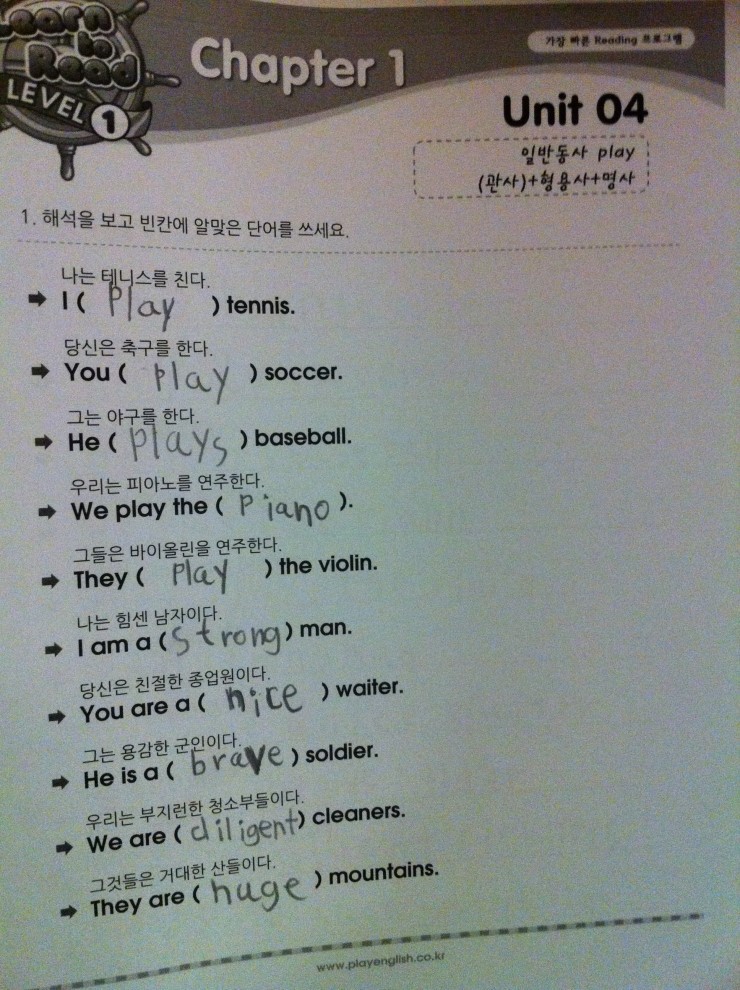 Learn
to
Read
LEVEL 1
Chapter 1
가장 빠른 Reading 프로그램
Unit 04
일반동사 play
(관사)+형용사+명사
1. 해석을 보고 빈칸에 알맞은 단어를 쓰세요.
나는 테니스를 친다.
➡ I ( play ) tennis.
당신은 축구를 한다.
➡ You ( play ) soccer.
그는 야구를 한다.
➡ He ( plays ) baseball.
우리는 피아노를 연주한다.
➡ We play the ( piano ).
그들은 바이올린을 연주한다.
➡ They ( play ) the violin.
나는 힘센 남자이다.
➡ I am a ( strong ) man.
당신은 친절한 종업원이다.
➡ You are a ( nice ) waiter.
그는 용감한 군인이다.
➡ He is a ( brave ) soldier.
우리는 부지런한 청소부들이다.
➡ We are ( diligent ) cleaners.
그것들은 거대한 산들이다.
➡ They are ( huge ) mountains.
www.playenglish.co.kr